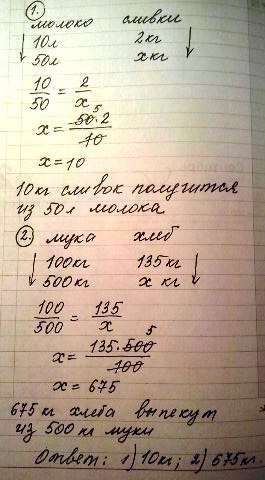 1.
молоко сливки
↓ 10л 2кг ↓
50л xкг
10/50 = 2/x
x = 50·2/10 5
x = 10
10кг сливок получится
из 50л молока
2. мука хлеб
↓ 100кг 135кг ↓
500кг x кг
100/500 = 135/x
x = 135·500/100 5
x = 675
675 кг хлеба выпекут
из 500 кг муки
Ответ: 1) 10кг; 2) 675кг.